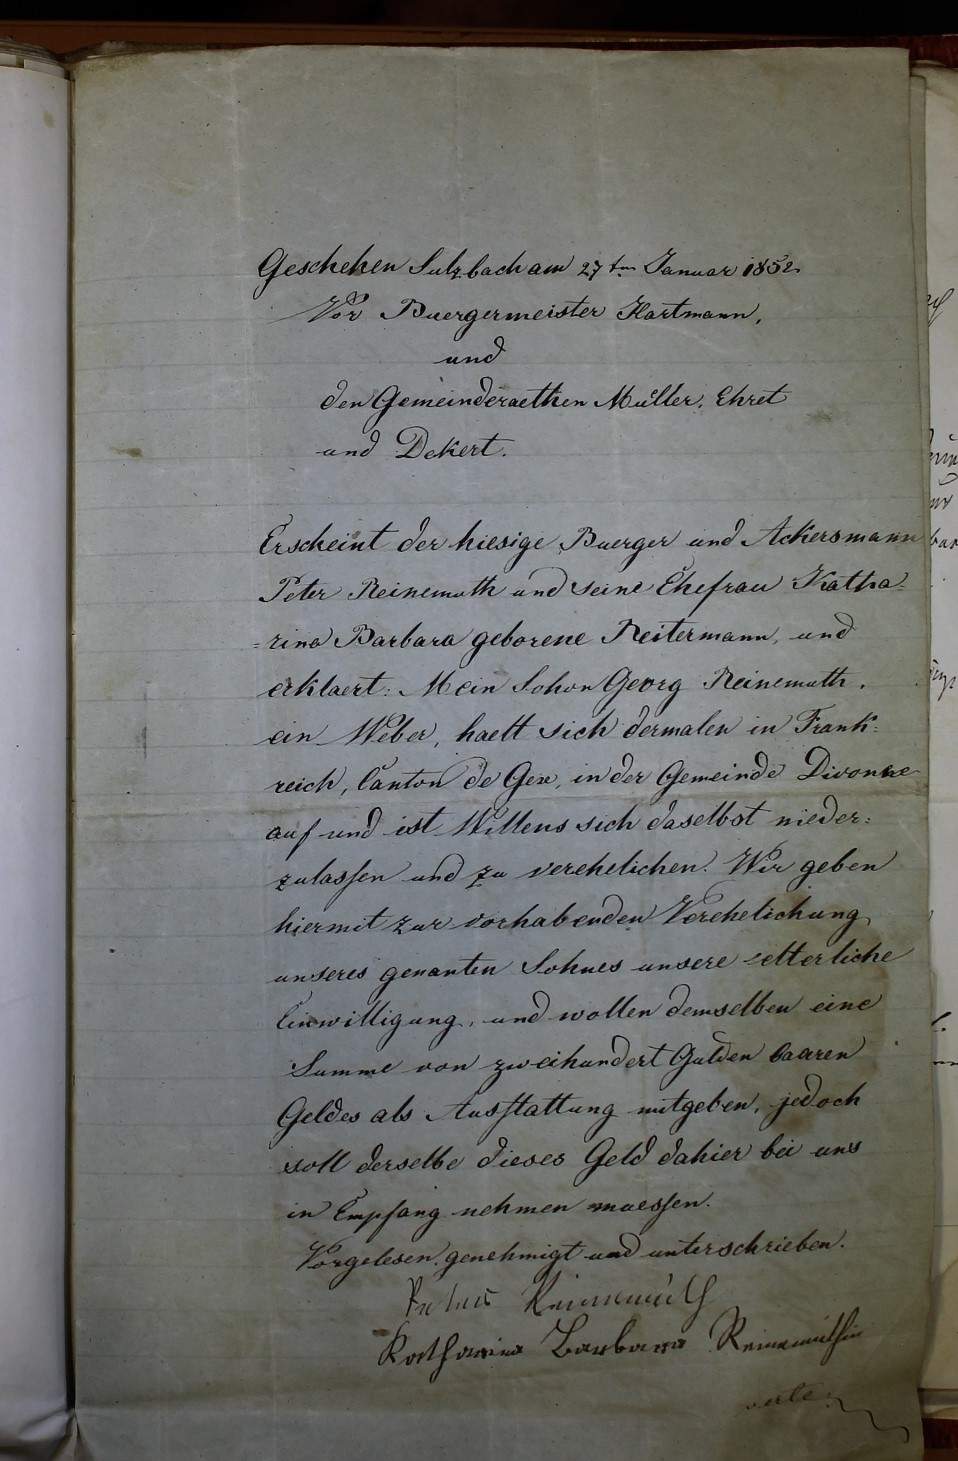 Geschehen Sulzbach am 27ten Januar 1852
Vor Buergermeister Hartmann,
und
den Gemeinderaethen Müller, Ehret
und Dekert.
Erscheint der hiesige Buerger und Ackersmann
Peter Reinemuth und seine Ehefrau Katha=
=rina Barbara geborene Reitermann, und
erklaert: Mein Sohon Georg Reinemuth,
ein Weber, haelt sich dermalen in Frank=
reich, Canton de Gex, in der Gemeinde Divonne
auf und ist Willens sich daselbst nieder=
zulassen und zu verehelichen. Wir geben
hiermit zur vorhabenden Verehelichung
unseres genanten Sohnes unsere elterliche
Einwilligung, und wollen demselben eine
Summe von zweihundert Gulden baaren
Geldes als Ausstattung mitgeben, jedoch
soll derselbe dieses Geld dahier bei uns
in Empfang nehmen muessen.
Vorgelesen, genehmigt und unterschrieben.
Petter Reinemuth
Katharina Barbara Reinemuthin
verte